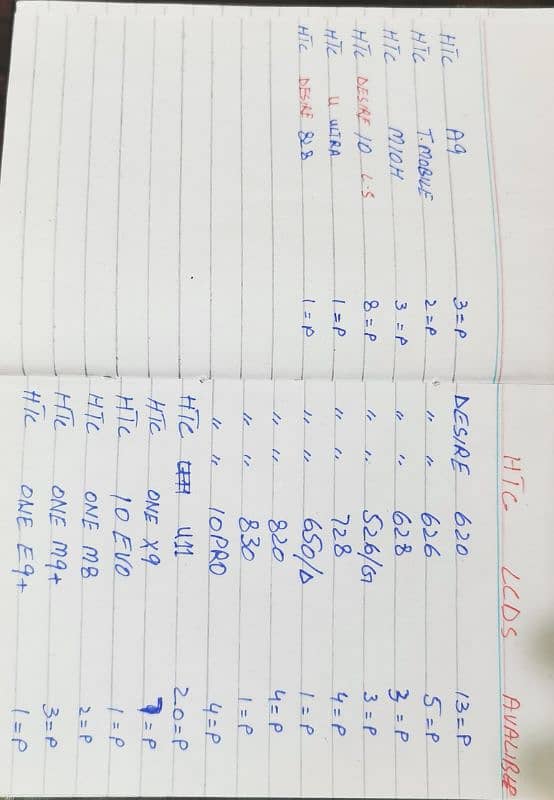 HTC LCDS AVALIBLE
DESIRE 620 13=P
" " 626 5=P
" " 628 3=P
" " 526/G 3=P
" " 728 4=P
" " 650/D 1=P
" " 820 4=P
" " 830 1=P
" " 10PRO 4=P
HTC U11 20=P
HTC ONE X9 7=P
HTC 10 EVO 1=P
HTC ONE M8 2=P
HTC ONE M9+ 3=P
HTC ONE E9+ 1=P
HTC A9 3=P
HTC T.MOBILE 2=P
HTC M10H 3=P
HTC DESIRE 10 L.S 8=P
HTC U ULTRA 1=P
HTC DESIRE 828 1=P